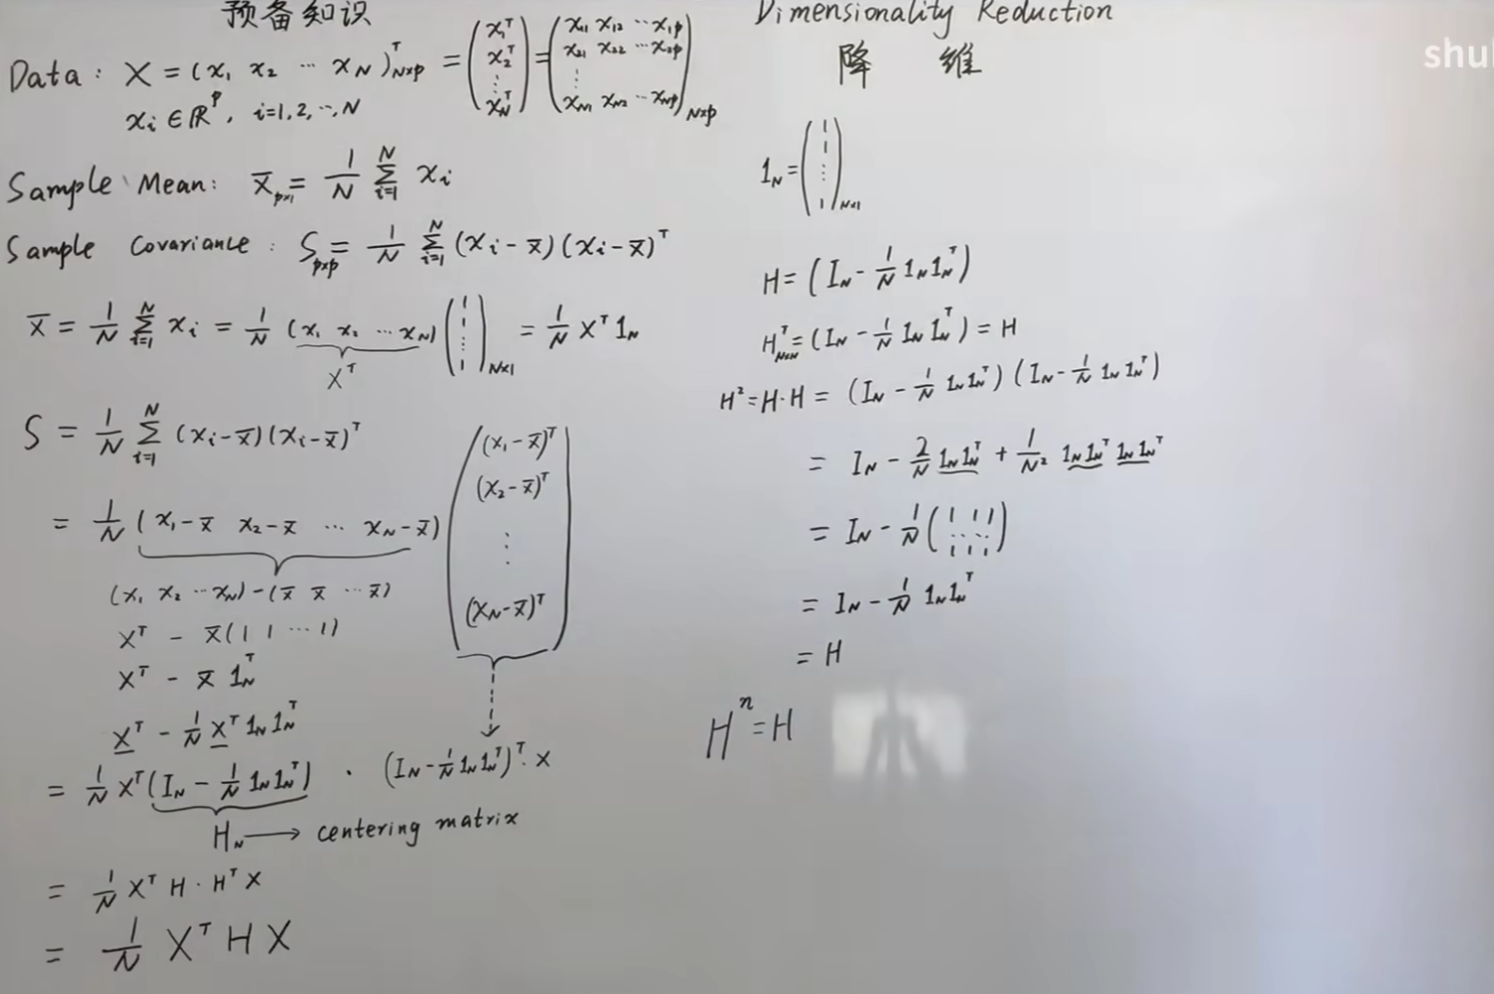 预备知识
Data: X = (x₁ x₂ ⋯ x_N)ᵀ_{N×p} = (x₁ᵀ x₂ᵀ ⋮ x_Nᵀ) = (x₁₁ x₁₂ ⋯ x₁p x₂₁ x₂₂ ⋯ x₂p ⋮ x_N1 x_N2 ⋯ x_Np)_{N×p}
xᵢ ∈ ℝᵖ, i=1,2,⋯,N
Sample Mean: x̄_{p×1} = 1/N Σ_{i=1}^{N} xᵢ
Sample Covariance: S_{p×p} = 1/N Σ_{i=1}^{N} (xᵢ - x̄)(xᵢ - x̄)ᵀ
x̄ = 1/N Σ_{i=1}^{N} xᵢ = 1/N (x₁ x₂ ⋯ x_N) (1 1 ⋮ 1)_{N×1} = 1/N Xᵀ 1_N
Xᵀ
S = 1/N Σ_{i=1}^{N} (xᵢ - x̄)(xᵢ - x̄)ᵀ
= 1/N (x₁ - x̄ x₂ - x̄ ⋯ x_N - x̄) ((x₁ - x̄)ᵀ (x₂ - x̄)ᵀ ⋮ (x_N - x̄)ᵀ)
(x₁ x₂ ⋯ x_N) - (x̄ x̄ ⋯ x̄)
Xᵀ - x̄ (1 1 ⋯ 1)
Xᵀ - x̄ 1_Nᵀ
Xᵀ - 1/N Xᵀ 1_N 1_Nᵀ
= 1/N Xᵀ (I_N - 1/N 1_N 1_Nᵀ) · (I_N - 1/N 1_N 1_Nᵀ)ᵀ · X
H_N → centering matrix
= 1/N Xᵀ H · Hᵀ X
= 1/N Xᵀ H X
Dimensionality Reduction
降 维
1_N = (1 1 ⋮ 1)_{N×1}
H = (I_N - 1/N 1_N 1_Nᵀ)
Hᵀ_{N×N} = (I_N - 1/N 1_N 1_Nᵀ) = H
H² = H·H = (I_N - 1/N 1_N 1_Nᵀ) (I_N - 1/N 1_N 1_Nᵀ)
= I_N - 2/N 1_N 1_Nᵀ + 1/N² 1_N 1_Nᵀ 1_N 1_Nᵀ
= I_N - 1/N (1 1 1 ⋯ 1 1 1)
= I_N - 1/N 1_N 1_Nᵀ
= H
Hⁿ = H